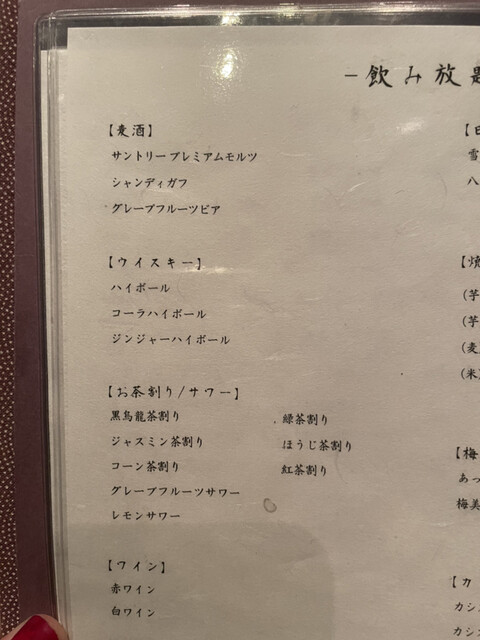 −飲み放題
【麦酒】
サントリープレミアムモルツ
シャンディガフ
グレープフルーツビア
【ウイスキー】
ハイボール
コーラハイボール
ジンジャーハイボール
【お茶割り/サワー】
黒烏龍茶割り
ジャスミン茶割り
コーン茶割り
グレープフルーツサワー
レモンサワー
緑茶割り
ほうじ茶割り
紅茶割り
【ワイン】
赤ワイン
白ワイン
雪
八
(芋
(芋
(麦
(米
【梅
あっ
梅美
【カ
カシ
カシ